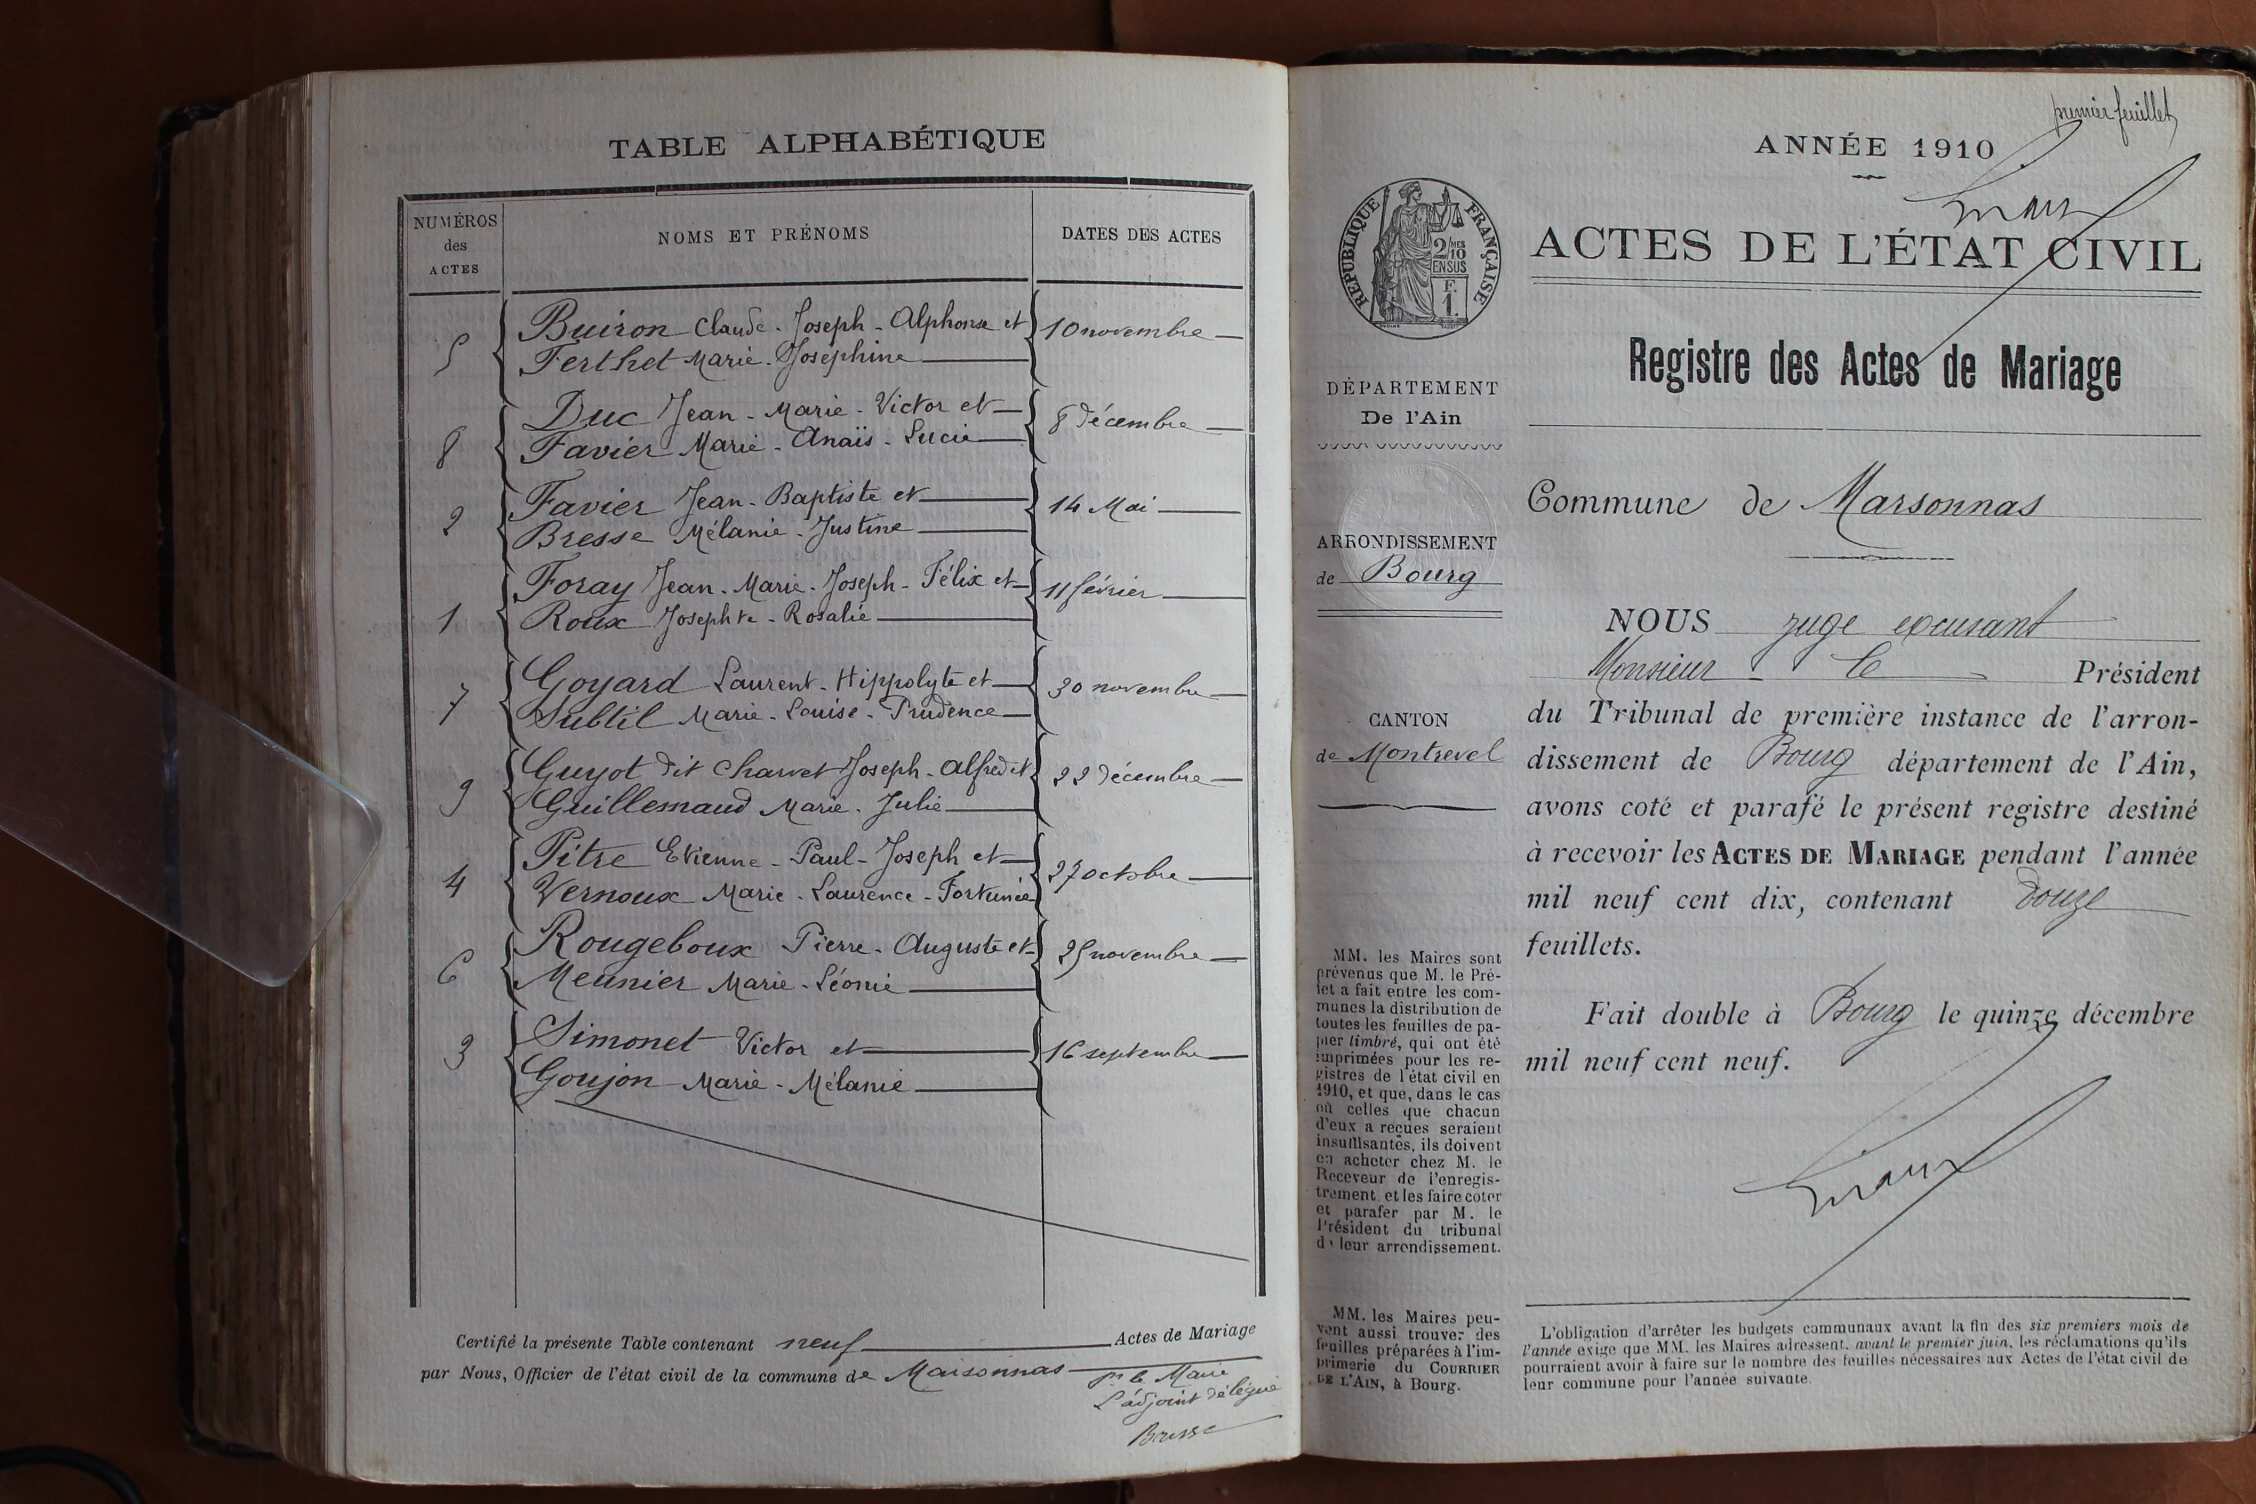 TABLE ALPHABÉTIQUE
NUMÉROS
des
ACTES
NOMS ET PRÉNOMS
DATES DES ACTES
5 Buiron Claude - Joseph - Alphonse et 10 novembre
Ferthet Marie - Joséphine
8 Duc Jean - Marie - Victor et 8 décembre
Favier Marie - Anaïs - Lucie
2 Favier Jean - Baptiste et 14 Mai
Bresse Mélanie - Justine
1 Foray Jean - Marie - Joseph - Félix et 11 février
Roux Josephte - Rosalie
7 Goyard Laurent - Hippolyte et 30 novembre
Subtil Marie - Louise - Prudence
9 Guyot dit Charvet Joseph - Alfred et 22 décembre
Guillemaud Marie - Julie
4 Pitre Etienne - Paul - Joseph et 27 octobre
Vernoux Marie - Laurence - Fortunée
6 Rougeboux Pierre - Auguste et 25 novembre
Meunier Marie - Léonie
3 Simonet Victor et 16 septembre
Goujon Marie - Mélanie
Certifié la présente Table contenant neuf Actes de Mariage
par Nous, Officier de l'état civil de la commune de Marsonnas
Pr le Maire
L'adjoint délégué
premier feuillet
ANNÉE 1910
RÉPUBLIQUE FRANÇAISE
2/10
EN SUS
F.
1.
ACTES DE L'ÉTAT CIVIL
Registre des Actes de Mariage
DÉPARTEMENT
De l'Ain
ARRONDISSEMENT
de Bourg
CANTON
de Montrevel
MM. les Maires sont
prévenus que M. le Pré-
fet a fait entre les com-
munes la distribution de
toutes les feuilles de pa-
pier timbré, qui ont été
imprimées pour les re-
gistres de l'état civil en
1910, et que, dans le cas
où celles que chacun
d'eux a reçues seraient
insuffisantes, ils doivent
en acheter chez M. le
Receveur de l'enregis-
trement et les faire coter
et parafer par M. le
Président du tribunal
de leur arrondissement.
MM. les Maires peu-
vent aussi trouver des
feuilles préparées à l'im-
primerie du COURRIER
DE L'AIN, à Bourg.
Commune de Marsonnas
NOUS juge excusant
Monsieur le Président
du Tribunal de première instance de l'arron-
dissement de Bourg département de l'Ain,
avons coté et parafé le présent registre destiné
à recevoir les ACTES DE MARIAGE pendant l'année
mil neuf cent dix, contenant douze
feuillets.
Fait double à Bourg le quinze décembre
mil neuf cent neuf.
L'obligation d'arrêter les budgets communaux avant la fin des six premiers mois de
l'année exige que MM. les Maires adressent, avant le premier juin, les réclamations qu'ils
pourraient avoir à faire sur le nombre des feuilles nécessaires aux Actes de l'état civil de
leur commune pour l'année suivante.